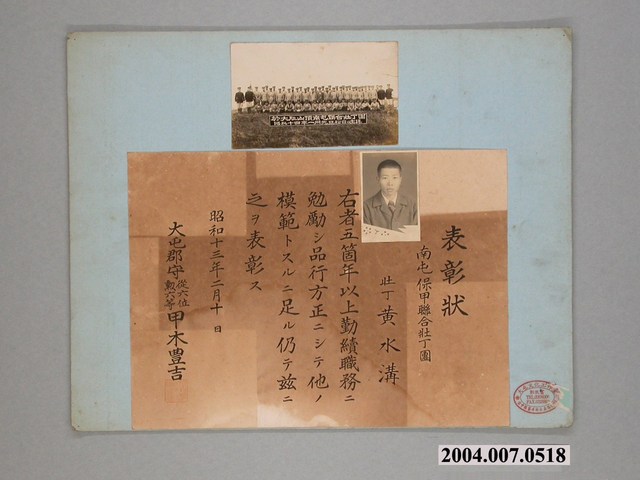 表彰狀
南屯保甲聯合壯丁團
壯丁 黃水溝
右者五箇年以上勤續職務ニ
勉勵シ品行方正ニシテ他ノ
模範トスルニ足ル仍テ茲ニ
之ヲ表彰ス
昭和十三年二月十日
大屯郡守從六位勳六等甲木豊吉
2004.007.0518